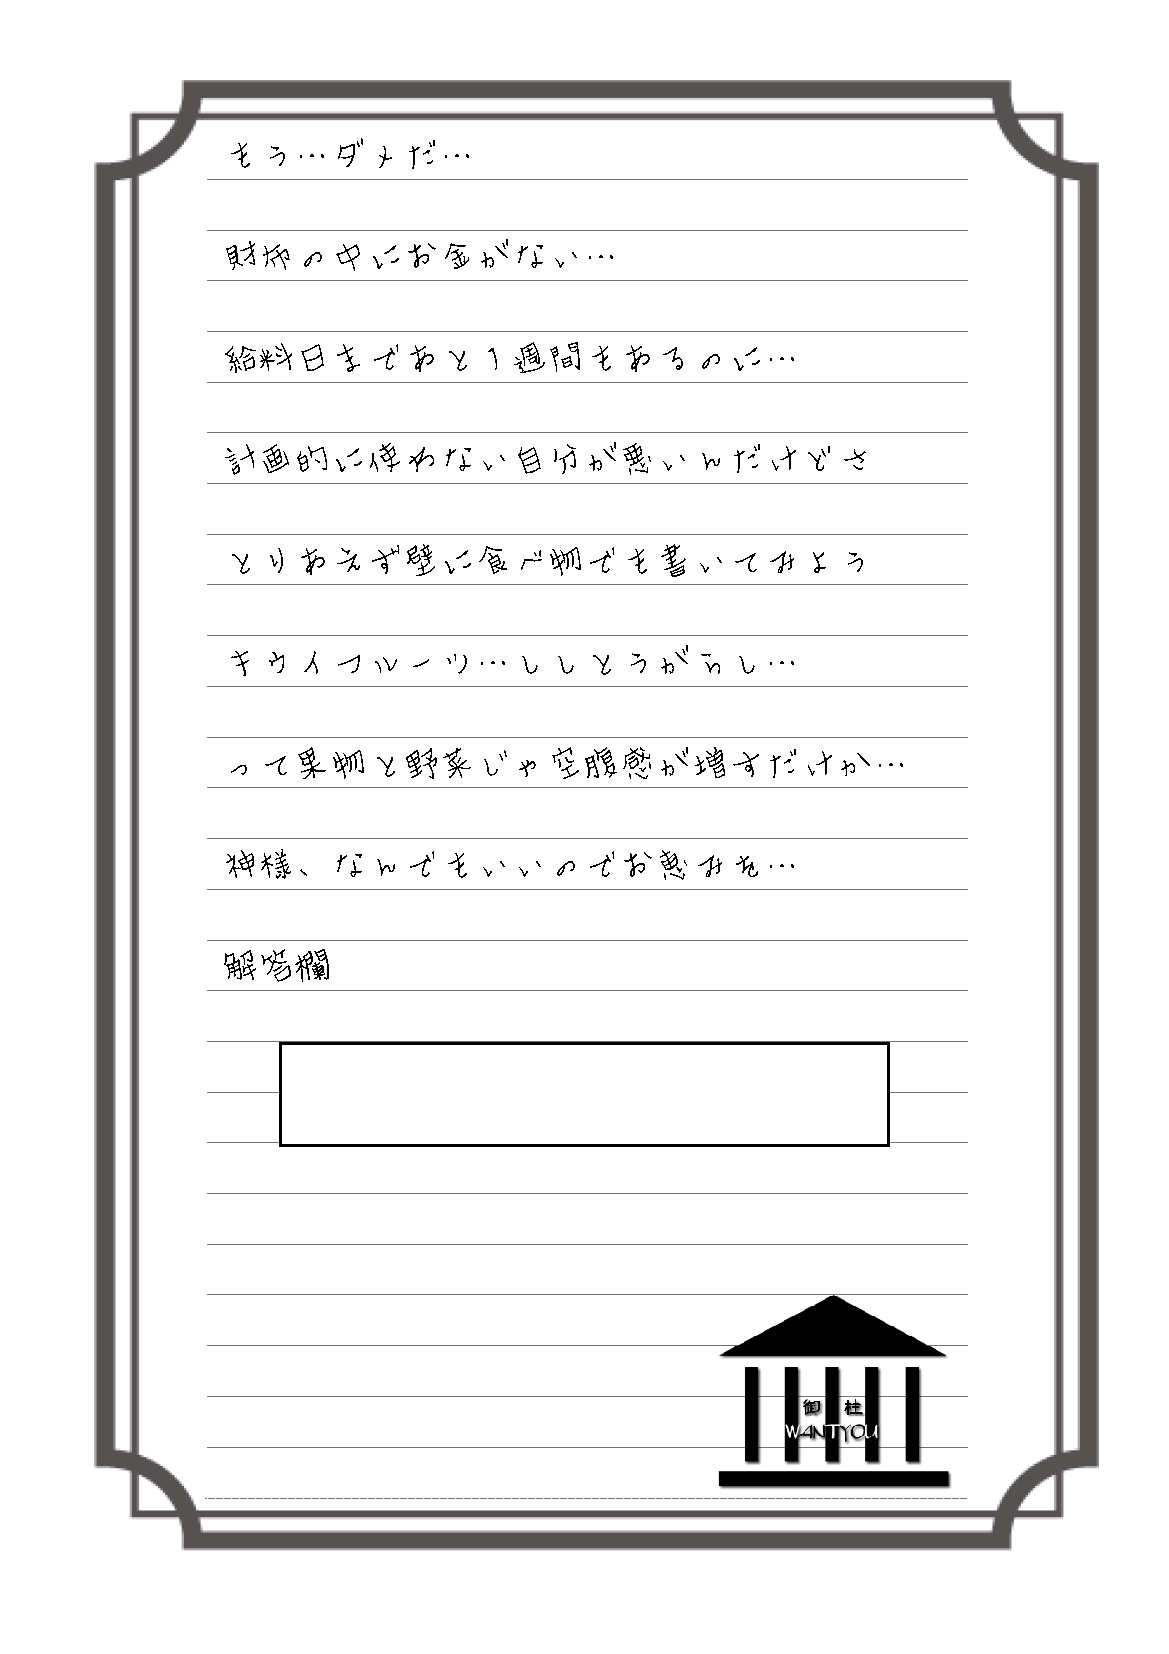 もう…ダメだ…
財布の中にお金がない…
給料日まであと1週間もあるのに…
計画的に使わない自分が悪いんだけどさ
とりあえず壁に食べ物でも書いてみよう
キウイフルーツ…ししとうがらし…
って果物と野菜じゃ空腹感が増すだけか…
神様、なんでもいいのでお恵みを…
解答欄
御柱
WANTYOU